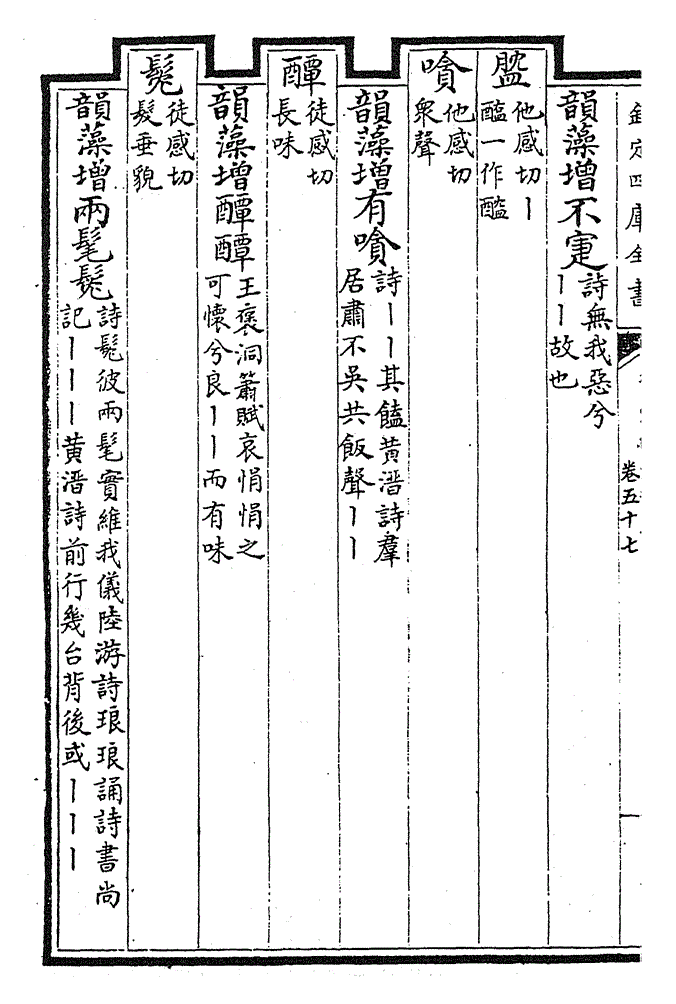 欽定四庫全書
卷五十七
韻藻增不寁詩無我惡兮
丨丨故也
𥁃他感切丨
醓一作醓
嗿他感切
衆聲
韻藻增有嗿詩丨丨其饁黄溍詩羣
居肅不吳共飯聲丨丨
醰徒感切
長味
韻藻增醰醰王褒洞簫賦哀悁悁之
可懷兮良丨丨而有味
髧徒感切
髮垂貌
韻藻增兩髦髧詩髧彼兩髦實維我儀陸游詩琅琅誦詩書尚
記丨丨丨黄溍詩前行幾台背後或丨丨丨